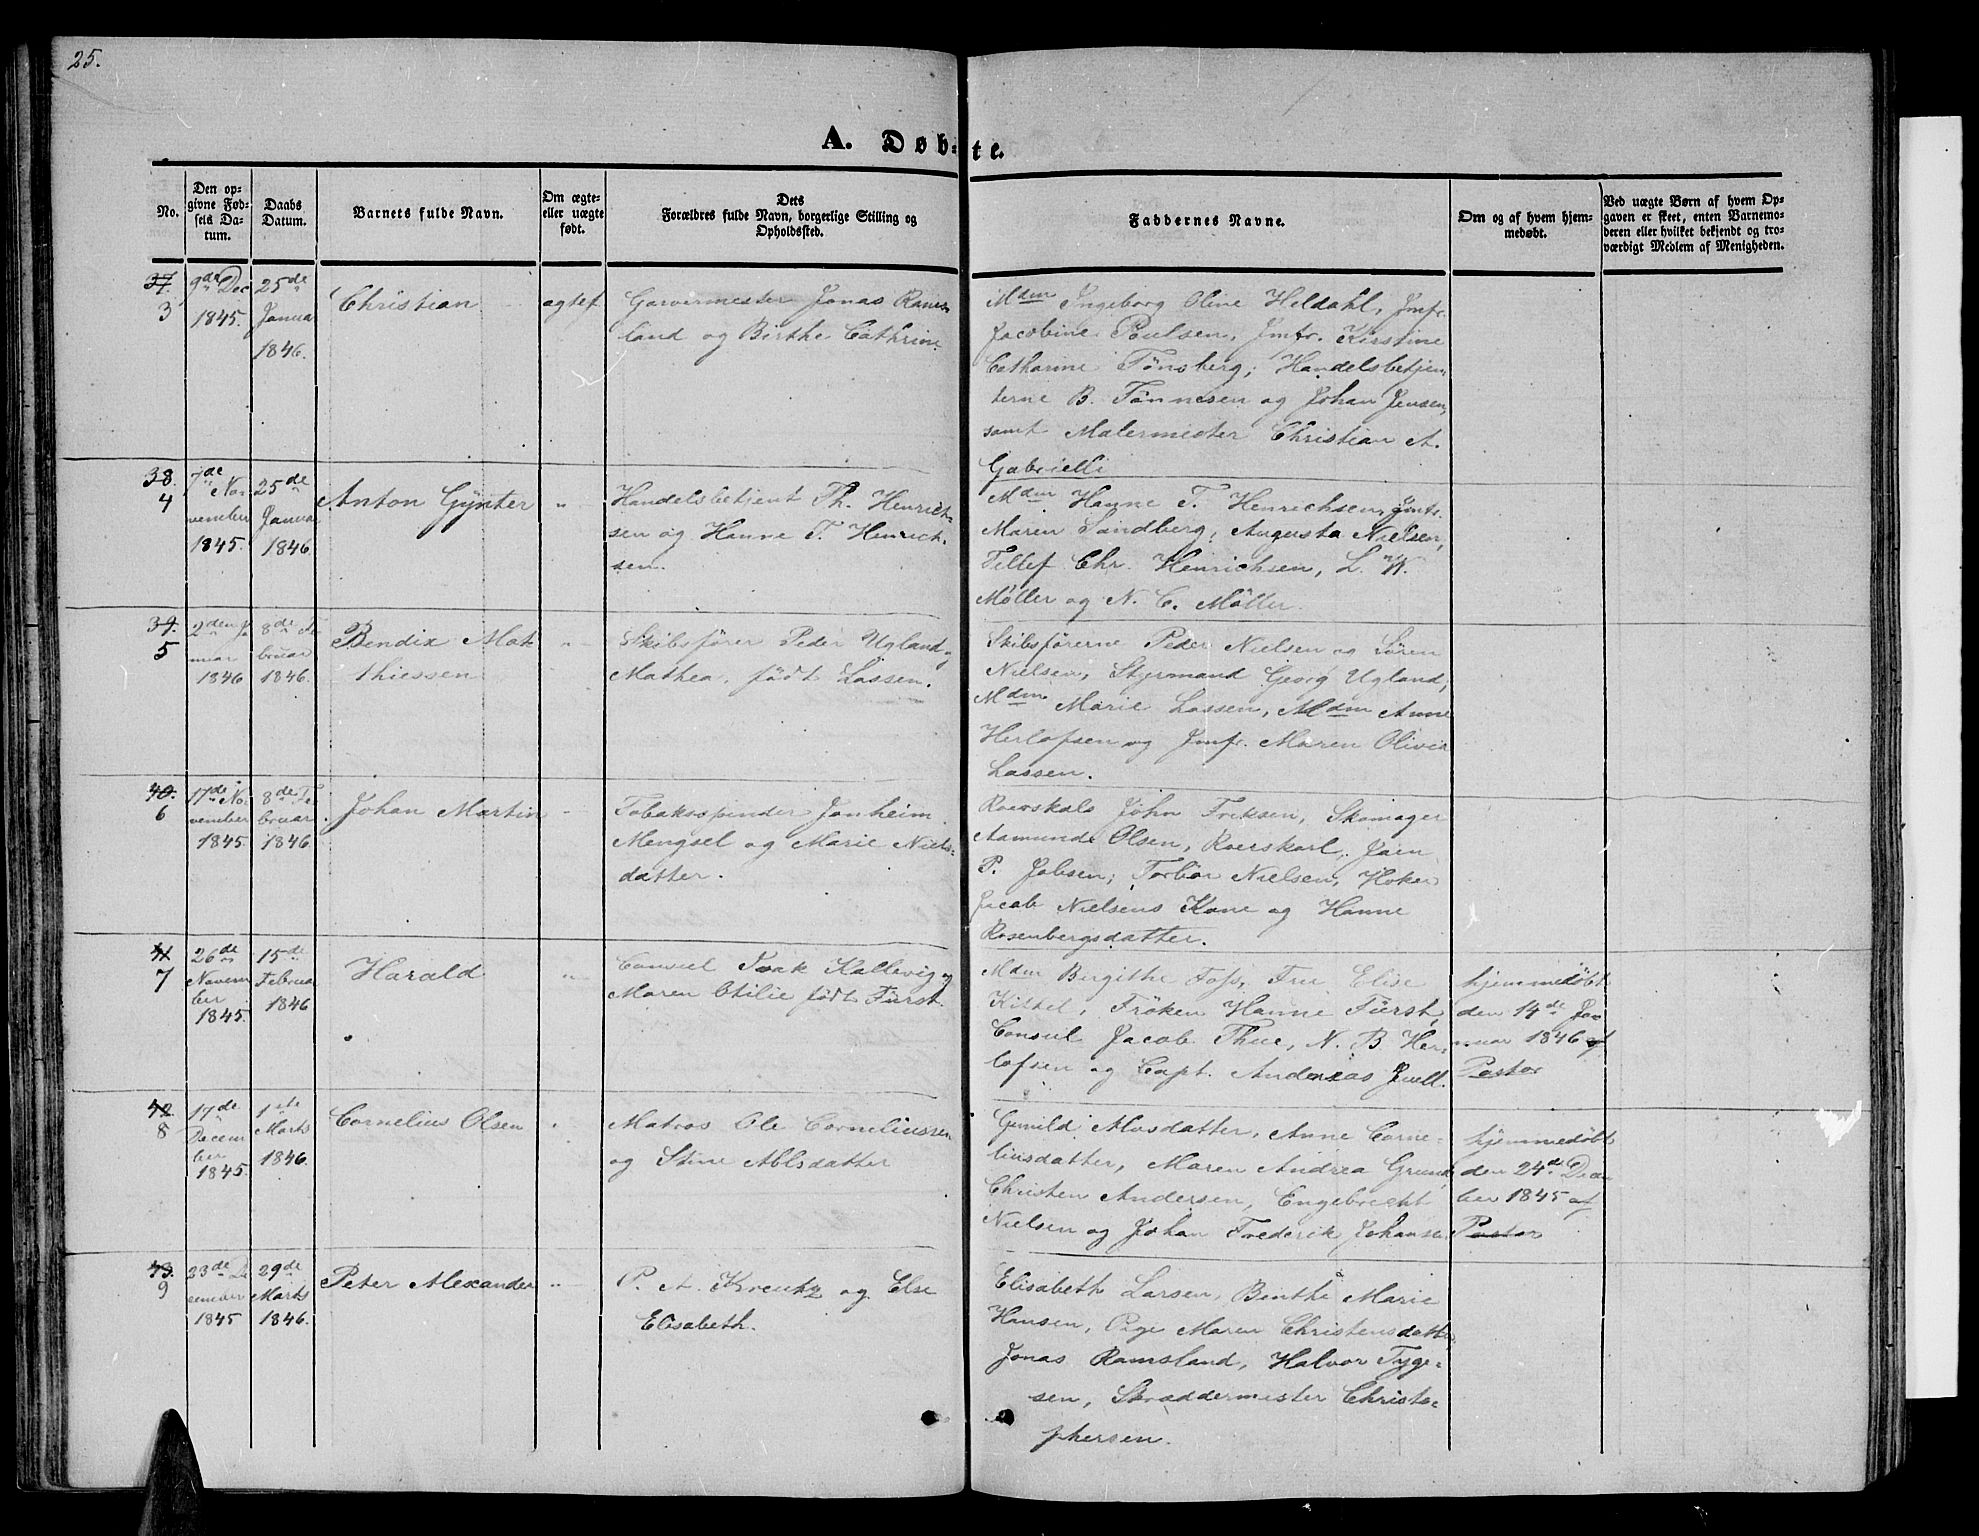 25.
A. Døb-te.
No.
Den op-
givne Fød-
sels Da-
tum.
Daabs
Datum.
Barnets fulde Navn.
Om ægte-
eller uægte
født.
Dets
Forældres fulde Navn, borgerlige Stilling og
Opholdssted.
Faddernes Navne.
Om og af hvem hjem-
medøbt.
Ved uægte Børn af hvem Op-
gaven er skeet, enten Barnemo-
deren eller hvilket bekjendt og tro-
værdigt Medlem af Menigheden.
37.
3
9de Dec
1845.
25de
Janua
1846.
Christian
agtef
Garvermester Jonas Rams-
land og Birthe Cathrine
Mdm Ingeborg Oline Heldahl, Jmfr.
Jacobine Poulsen, Jmfr. Kirstine
Catharine Tönsberg, Handelsbetjen-
terne B. Tönnesen og Johan Jensen,
samt Malermester Christian A.
Gabrielli
38.
4
7de No-
vember
1845.
25de
Janua
1846
Anton Gynter
"
Handelsbetjent Th. Henrich-
sen og Hanne T. Henrich-
sen.
Mdm Hanne T. Henrichsen, Jmfr.
Maren Sandberg, Augusta Nielsen,
Tellef Chr. Henrichsen, L. W.
Møller og N. C. Møller.
39.
5
2den Ja
nuar
1846
8de Fe
bruar
1846.
Bendix Mat
thiessen
"
Skibsförer Peder Ugland og
Mathea, född Lassen.
Skibsförerne Peder Nielsen og Sören
Nielsen, Styrmand Georg Ugland,
Mdm Marie Lassen, Mdm Anne
Herlofsen og Jmfr. Maren Olivia
Lassen.
40.
6
17de No-
vember
1845.
8de Fe
bruar
1846
Johan Martin
"
Tobaksspinder Jonheim
Mengsel og Marie Niels-
datter.
Roerskals John Eriksen, Skomager
Aamunde Olsen, Roerskarl, Joen
P. Jobsen, Torbor Nielsen, Høker
Jacob Nielsens Kone og Hanne
Rosenbergsdatter.
41
7
26de
Novem
ber
1845.
15de
Februa
1846
Harald
"
Consul Isak Kallevig og
Maren Otilie født Fürst.
Mdm Birgithe Foss, Fru Elise
Kittel, Fröken Hanne Fürst,
Consul Jacob Thue, N. B. Her-
lofsen og Capt. Andreas Juell.
hjemmedøbt
den 14de Ja
nuar 1846 af
Pastor
42
8
17de
Decem
ber
1845.
1ste
Marts
1846.
Cornelius Olsen
"
Matros Ole Corneliussen
og Stine Ablsdatter
Gunild Aasdatter, Anne Corne-
liusdatter, Maren Andrea Grund,
Christen Andersen, Engebrecht
Nielsen og Johan Frederik Johansen
hjemmedøbt
den 24de Decem
ber 1845 af
Pastor
43.
9
23de De
cember
1845
29de
Marts
1846.
Peter Alexander
"
P. A. Kreutz og Else
Elisabeth.
Elisabeth Larsen, Benthe Marie
Hansen, Pige Maren Christensdatter
Jonas Ramsland, Halvor Tyge-
sen, Skræddermester Christo-
phersen.